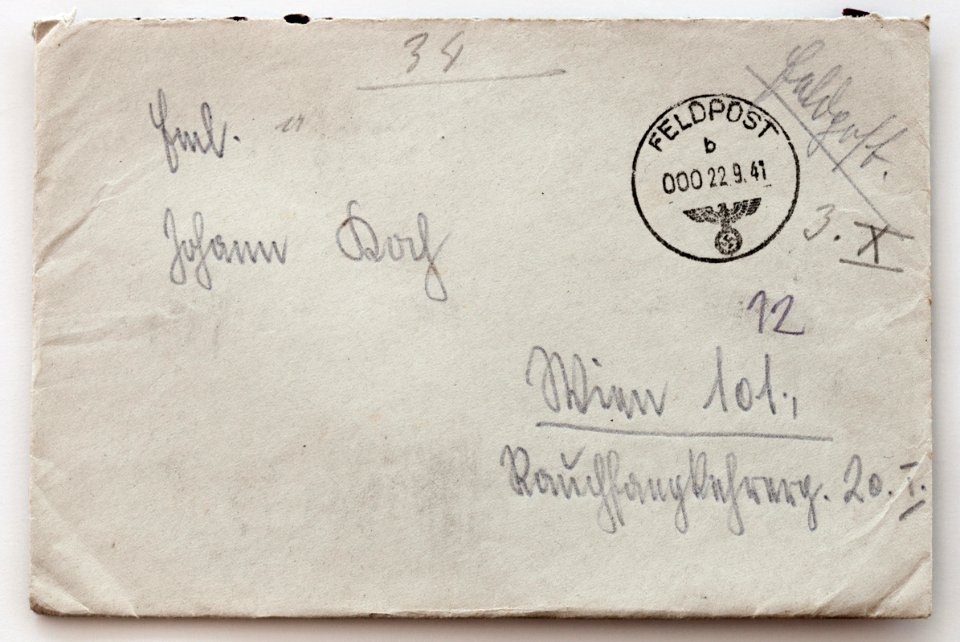 34
Feldpost.
Fml.
FELDPOST
b
000 22.9.41
Johann Koch
3. X
12
Wien 101.,
Rauchfangkehrerg. 20. I.